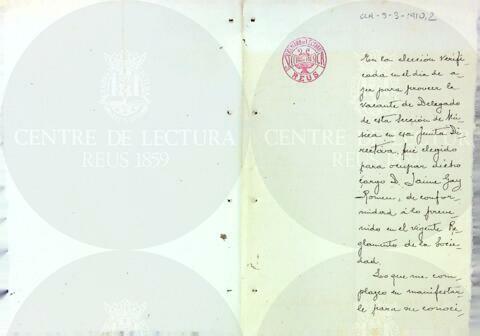 CCR-9-3-1910,2
CENTRO DE LECTURA
REUS
CENTRE DE LECTURA
REUS 1859
En la elección verifi
cada en el día de a-
yer para proveer la
vacante de Delegado
de esta Sección de Mú-
sica en esa Junta Di-
rectiva, fué elegido
para ocupar dicho
cargo D. Jaime Gay
Romeu, de confor-
midad á lo preve-
nido en el vigente Re-
glamento de la Socie-
dad.
Lo que me com-
plazco en manifestar-
le para su conoci-